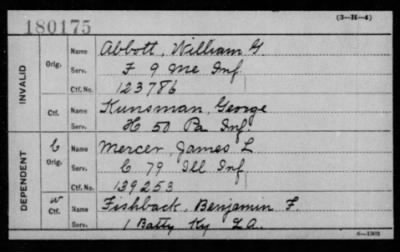 (3-H-4)
180175
INVALID
Orig. Name Abbott, William G
Serv. F 9 Me Inf
Ctf. No. 123786
Ctf. Name Kunsman, George
Serv. H 50 Pa Inf
DEPENDENT
C Orig. Name Mercer, James L
Serv. C 79 Ill Inf
Ctf. No. 139253
W Ctf. Name Fishback, Benjamin F.
Serv. 1 Batty Ky L.A.